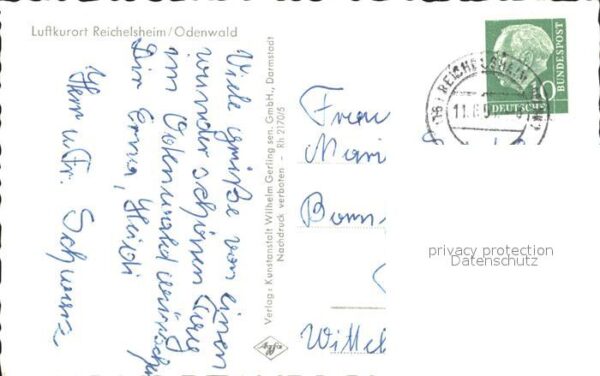 Luftkurort Reichelsheim/Odenwald
Viele Grüße von einen
wunder schönen
im Odenwald wünschen
Dir Erna, Heidi
Herr u. Fr. Schwarz
Verlag: Kunstanstalt Wilhelm Gerling sen. GmbH., Darmstadt
Nachdruck verboten - Rh 2170/5
Agfa
DEUTSCHE
BUNDESPOST
10
REICHELSHEIM
Frau
Mari
Bonn-
Wittel
privacy protection
Datenschutz